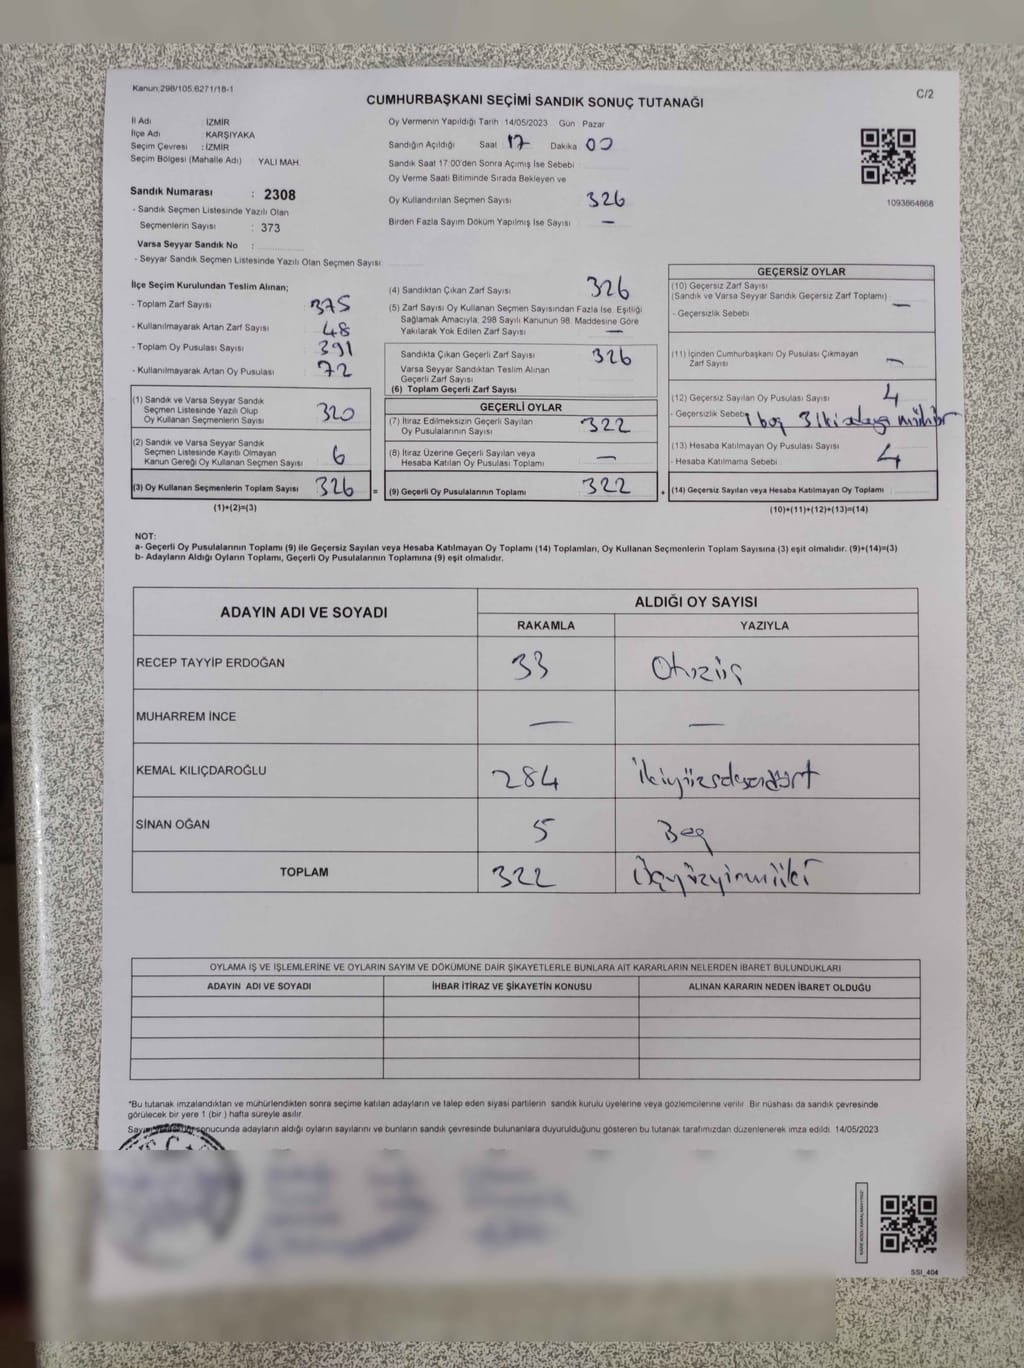 Kanun:298/105.6271/18-1
C/2
CUMHURBAŞKANI SEÇİMİ SANDIK SONUÇ TUTANAĞI
İl Adı : İZMİR
İlçe Adı : KARŞIYAKA
Seçim Çevresi : İZMİR
Seçim Bölgesi (Mahalle Adı) YALI MAH.
Sandık Numarası : 2308
- Sandık Seçmen Listesinde Yazılı Olan
Seçmenlerin Sayısı : 373
Varsa Seyyar Sandık No :
- Seyyar Sandık Seçmen Listesinde Yazılı Olan Seçmen Sayısı:
Oy Vermenin Yapıldığı Tarih 14/05/2023 Gün Pazar
Sandığın Açıldığı Saat 17 Dakika 00
Sandık Saat 17:00'den Sonra Açımış İse Sebebi
Oy Verme Saati Bitiminde Sırada Bekleyen ve
Oy Kullandırılan Seçmen Sayısı 326
Birden Fazla Sayım Döküm Yapılmış İse Sayısı —
1093864868
İlçe Seçim Kurulundan Teslim Alınan;
- Toplam Zarf Sayısı 375
- Kullanılmayarak Artan Zarf Sayısı 48
- Toplam Oy Pusulası Sayısı 391
- Kullanılmayarak Artan Oy Pusulası 72
(1) Sandık ve Varsa Seyyar Sandık
Seçmen Listesinde Yazılı Olup
Oy Kullanan Seçmenlerin Sayısı 320
(2) Sandık ve Varsa Seyyar Sandık
Seçmen Listesinde Kayıtlı Olmayan
Kanun Gereği Oy Kullanan Seçmen Sayısı 6
(3) Oy Kullanan Seçmenlerin Toplam Sayısı 326 =
(1)+(2)=(3)
(4) Sandıktan Çıkan Zarf Sayısı 326
(5) Zarf Sayısı Oy Kullanan Seçmen Sayısından Fazla İse, Eşitliği
Sağlamak Amacıyla, 298 Sayılı Kanunun 98. Maddesine Göre
Yakılarak Yok Edilen Zarf Sayısı —
Sandıkta Çıkan Geçerli Zarf Sayısı 326
Varsa Seyyar Sandıktan Teslim Alınan
Geçerli Zarf Sayısı
(6) Toplam Geçerli Zarf Sayısı
GEÇERLİ OYLAR
(7) İtiraz Edilmeksizin Geçerli Sayılan
Oy Pusulalarının Sayısı 322
(8) İtiraz Üzerine Geçerli Sayılan veya
Hesaba Katılan Oy Pusulası Toplamı —
(9) Geçerli Oy Pusulalarının Toplamı 322 +
GEÇERSİZ OYLAR
(10) Geçersiz Zarf Sayısı
(Sandık ve Varsa Seyyar Sandık Geçersiz Zarf Toplamı) —
- Geçersizlik Sebebi
(11) İçinden Cumhurbaşkanı Oy Pusulası Çıkmayan
Zarf Sayısı —
(12) Geçersiz Sayılan Oy Pusulası Sayısı 4
- Geçersizlik Sebebi 1 boş 3 iki adaya mühür
(13) Hesaba Katılmayan Oy Pusulası Sayısı 4
- Hesaba Katılmama Sebebi
(14) Geçersiz Sayılan veya Hesaba Katılmayan Oy Toplamı
(10)+(11)+(12)+(13)=(14)
NOT:
a- Geçerli Oy Pusulalarının Toplamı (9) ile Geçersiz Sayılan veya Hesaba Katılmayan Oy Toplamı (14) Toplamları, Oy Kullanan Seçmenlerin Toplam Sayısına (3) eşit olmalıdır. (9)+(14)=(3)
b- Adayların Aldığı Oyların Toplamı, Geçerli Oy Pusulalarının Toplamına (9) eşit olmalıdır.
ADAYIN ADI VE SOYADI ALDIĞI OY SAYISI
RAKAMLA YAZIYLA
RECEP TAYYİP ERDOĞAN 33 Otuzüç
MUHARREM İNCE — —
KEMAL KILIÇDAROĞLU 284 İkiyüzseksendört
SİNAN OĞAN 5 Beş
TOPLAM 322 Üçyüzyirmiiki
OYLAMA İŞ VE İŞLEMLERİNE VE OYLARIN SAYIM VE DÖKÜMÜNE DAİR ŞİKAYETLERLE BUNLARA AİT KARARLARIN NELERDEN İBARET BULUNDUKLARI
ADAYIN ADI VE SOYADI İHBAR İTİRAZ VE ŞİKAYETİN KONUSU ALINAN KARARIN NEDEN İBARET OLDUĞU
*Bu tutanak imzalandıktan ve mühürlendikten sonra seçime katılan adayların ve talep eden siyasi partilerin sandık kurulu üyelerine veya gözlemcilerine verilir. Bir nüshası da sandık çevresinde
görülecek bir yere 1 (bir ) hafta süreyle asılır.
sonucunda adayların aldığı oyların sayılarını ve bunların sandık çevresinde bulunanlara duyurulduğunu gösteren bu tutanak tarafımızdan düzenlenerek imza edildi. 14/05/2023
SSI_404